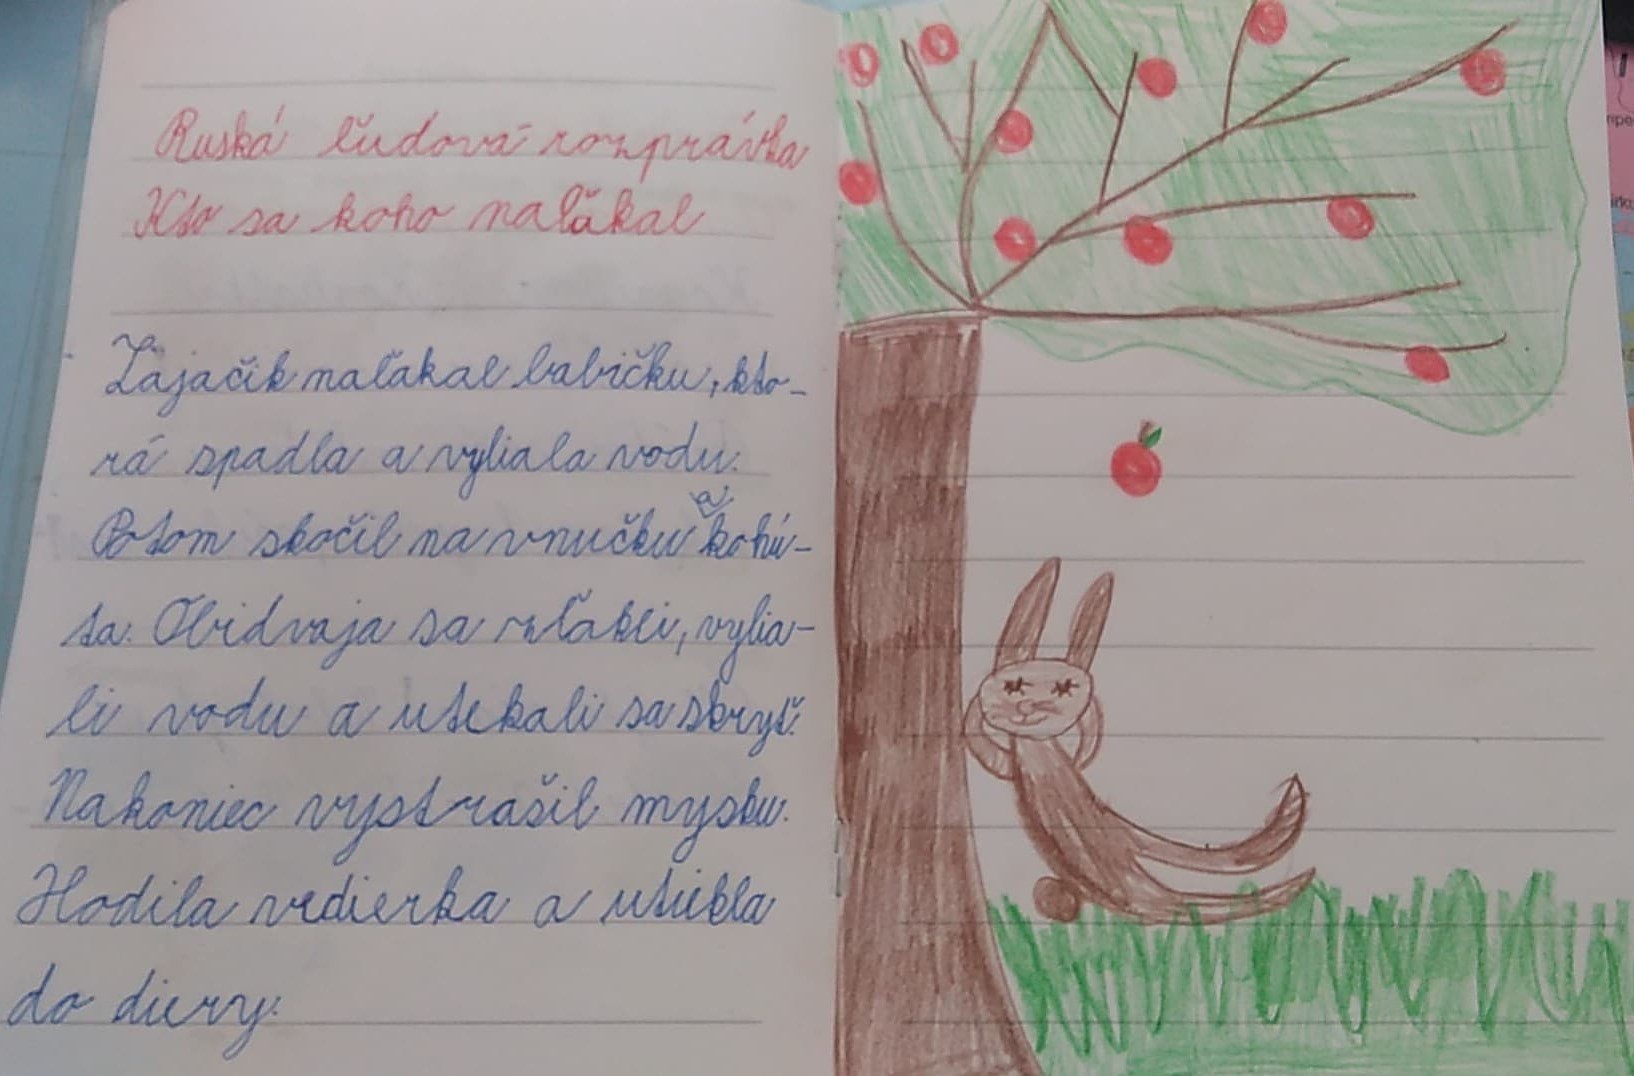 Ruská ľudová rozprávka
Kto sa koho naľakal
Zajačik naľakal babičku, kto-
rá spadla a vyliala vodu.
Potom skočil na vnučku a kohú-
ta. Obidvaja sa zľakli, vylia-
li vodu a utekali sa skryť.
Nakoniec vystrašil mysku.
Hodila vedierka a utiekla
do diery.